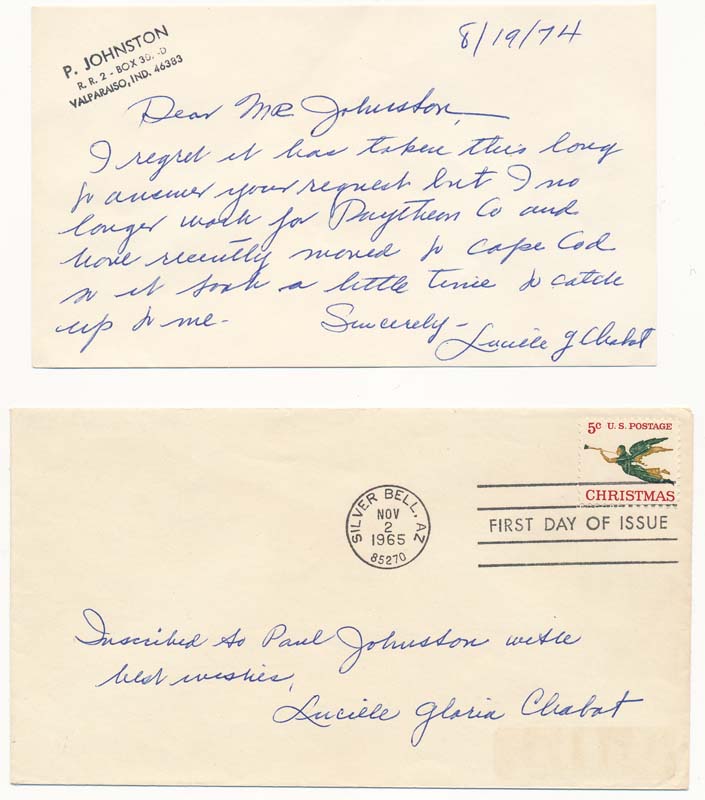 P. JOHNSTON
R. R. 2 - BOX
VALPARAISO, IND. 46383
8/19/74
Dear Mr Johnston,
I regret it has taken this long
to answer your request but I no
longer work for Raytheon Co and
have recently moved to Cape Cod
so it took a little time to catch
up to me-
Sincerely-
Lucille G Chabot
5c U. S. POSTAGE
CHRISTMAS
SILVER BELL, AZ
NOV
2
1965
85270
FIRST DAY OF ISSUE
Inscribed to Paul Johnston with
best wishes,
Lucille Gloria Chabot